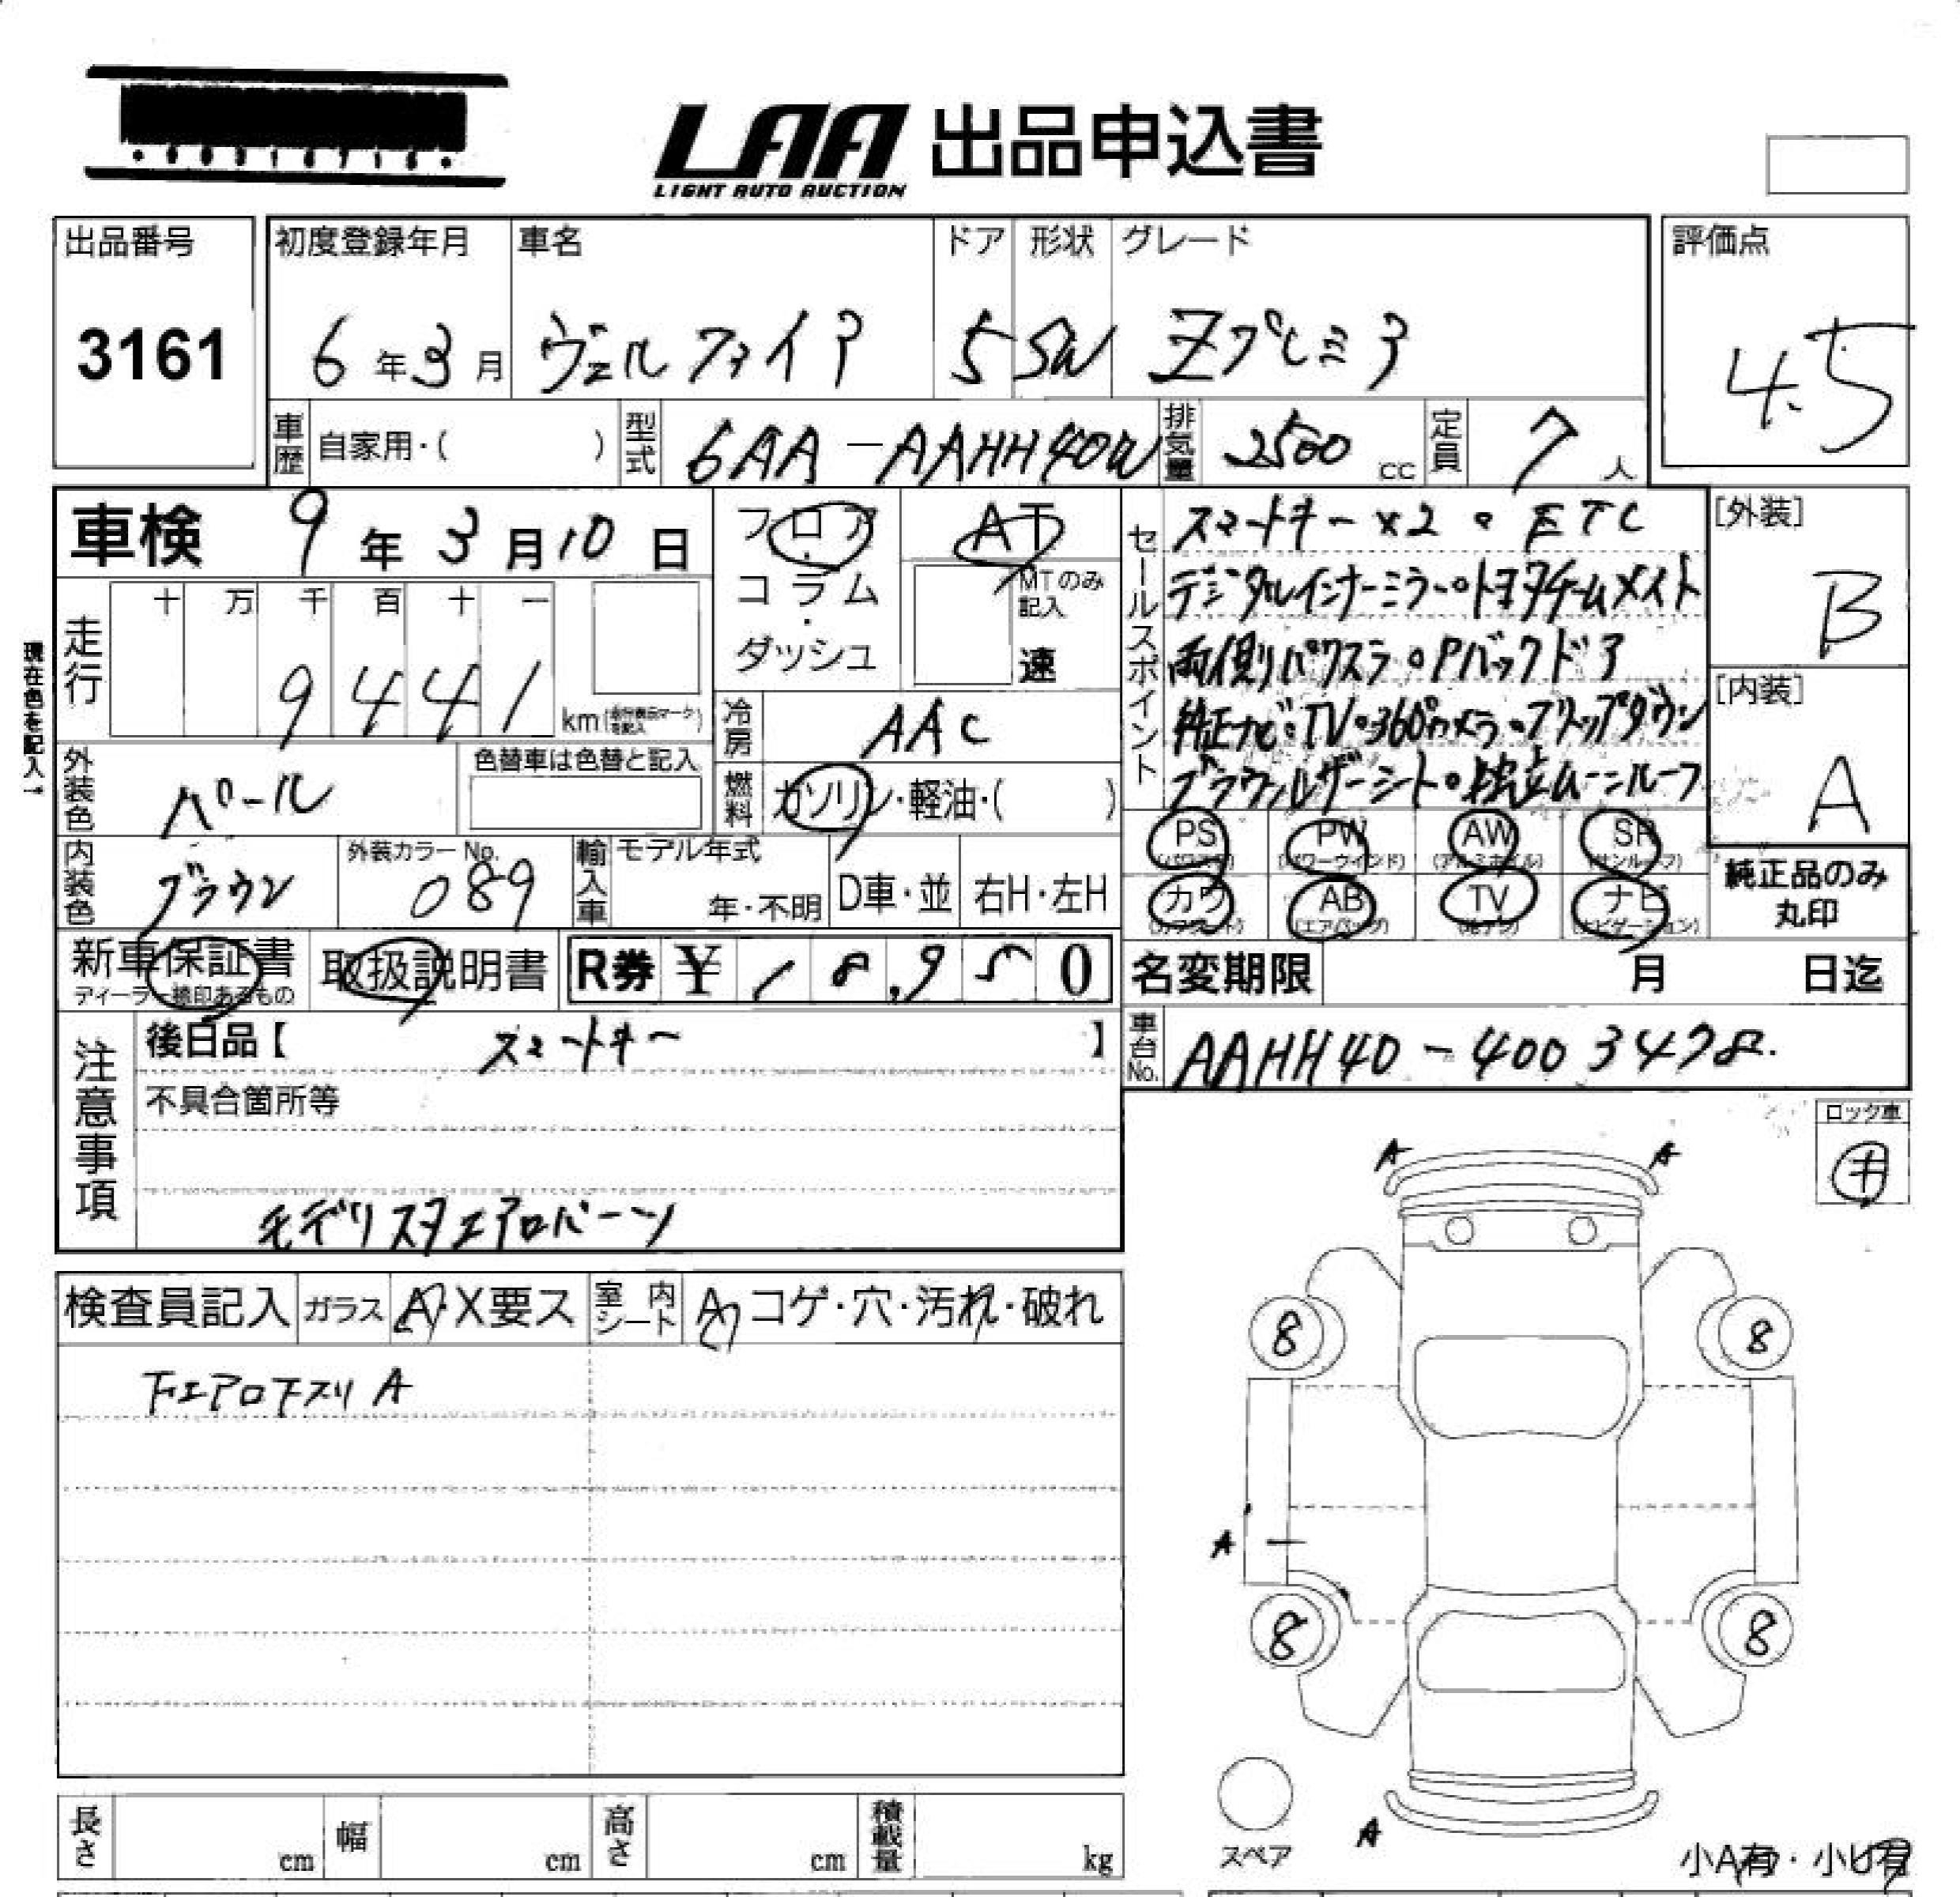 LAA 出品申込書
LIGHT AUTO AUCTION
出品番号
3161
初度登録年月
6年3月
車名
ヴェルファイア
ドア
5
形状
SW
グレード
Zプレミア
評価点
4.5
車歴 自家用・( )
型式 6AA-AAHH40W
排気量 2500 cc
定員 7人
車検 9年3月10日
フロア・コラム・ダッシュ
AT
MTのみ記入
速
セールスポイント
スマートキー×2。ETC
デジタルインナーミラー。トヨタチームメイト
両側パワスラ。Pバックドア
純正ナビ。TV。360°カメラ。フリップダウン
ブラウンレザーシート。独立ムーンルーフ
[外装]
B
[内装]
A
現在色を記入!
走行
十 万 千 百 十 一
9 4 4 1 km
冷房 AAC
外装色 パール
色替車は色替と記入
燃料 ガソリン・軽油・( )
内装色 ブラウン
外装カラーNo. 089
輸入車
モデル年式
年・不明
D車・並
右H・左H
PS (パワステ)
PW (パワーウィンド)
AW (アルミホイル)
SR (サンルーフ)
カワ (カワシート)
AB (エアバッグ)
TV (地デジ)
ナビ (ナビゲーション)
純正品のみ丸印
新車保証書
ディーラー捺印あるもの
取扱説明書
R券 ¥ 18,950
名変期限 月 日迄
車台No. AAHH40-4003478.
注意事項
後日品【 スマートキー 】
不具合箇所等
モデリスタエアロバーン
ロック車
キ
A A
検査員記入
ガラス A・X要ス
室内シート A・コゲ・穴・汚れ・破れ
下エアロ下スリA
8 8
A
8 8
A
スペア
小A有・小U有
長さ cm
幅 cm
高さ cm
積載量 kg